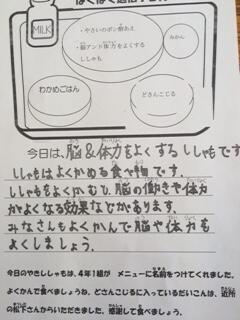 MILK
・やさいのポン酢あえ
・脳アンド体力をよくする
ししゃも
みかん
わかめごはん
どさんこじる
今日は、脳&体力をよくするししゃもです。
ししゃもはよくかめる食べ物です。
ししゃもをよくかむと、脳の働きや体力
がよくなる効果などがあります。
みなさんもよくかんで脳や体力も
よくしましょう。
今日のやきししゃもは、4年1組が メニューに名前をつけてくれました。
よくかんで食べましょうね。どさんこじるに入っているだいこんは、近所
の松下さんからいただきました。感謝して食べましょう。